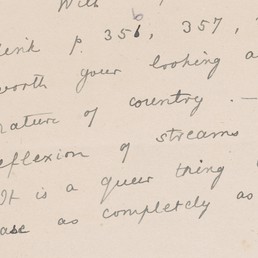 With
link p. 356, 357,
worth your looking a
nature of country. —
eflexion of streams
It is a queer thing
ase as completely as